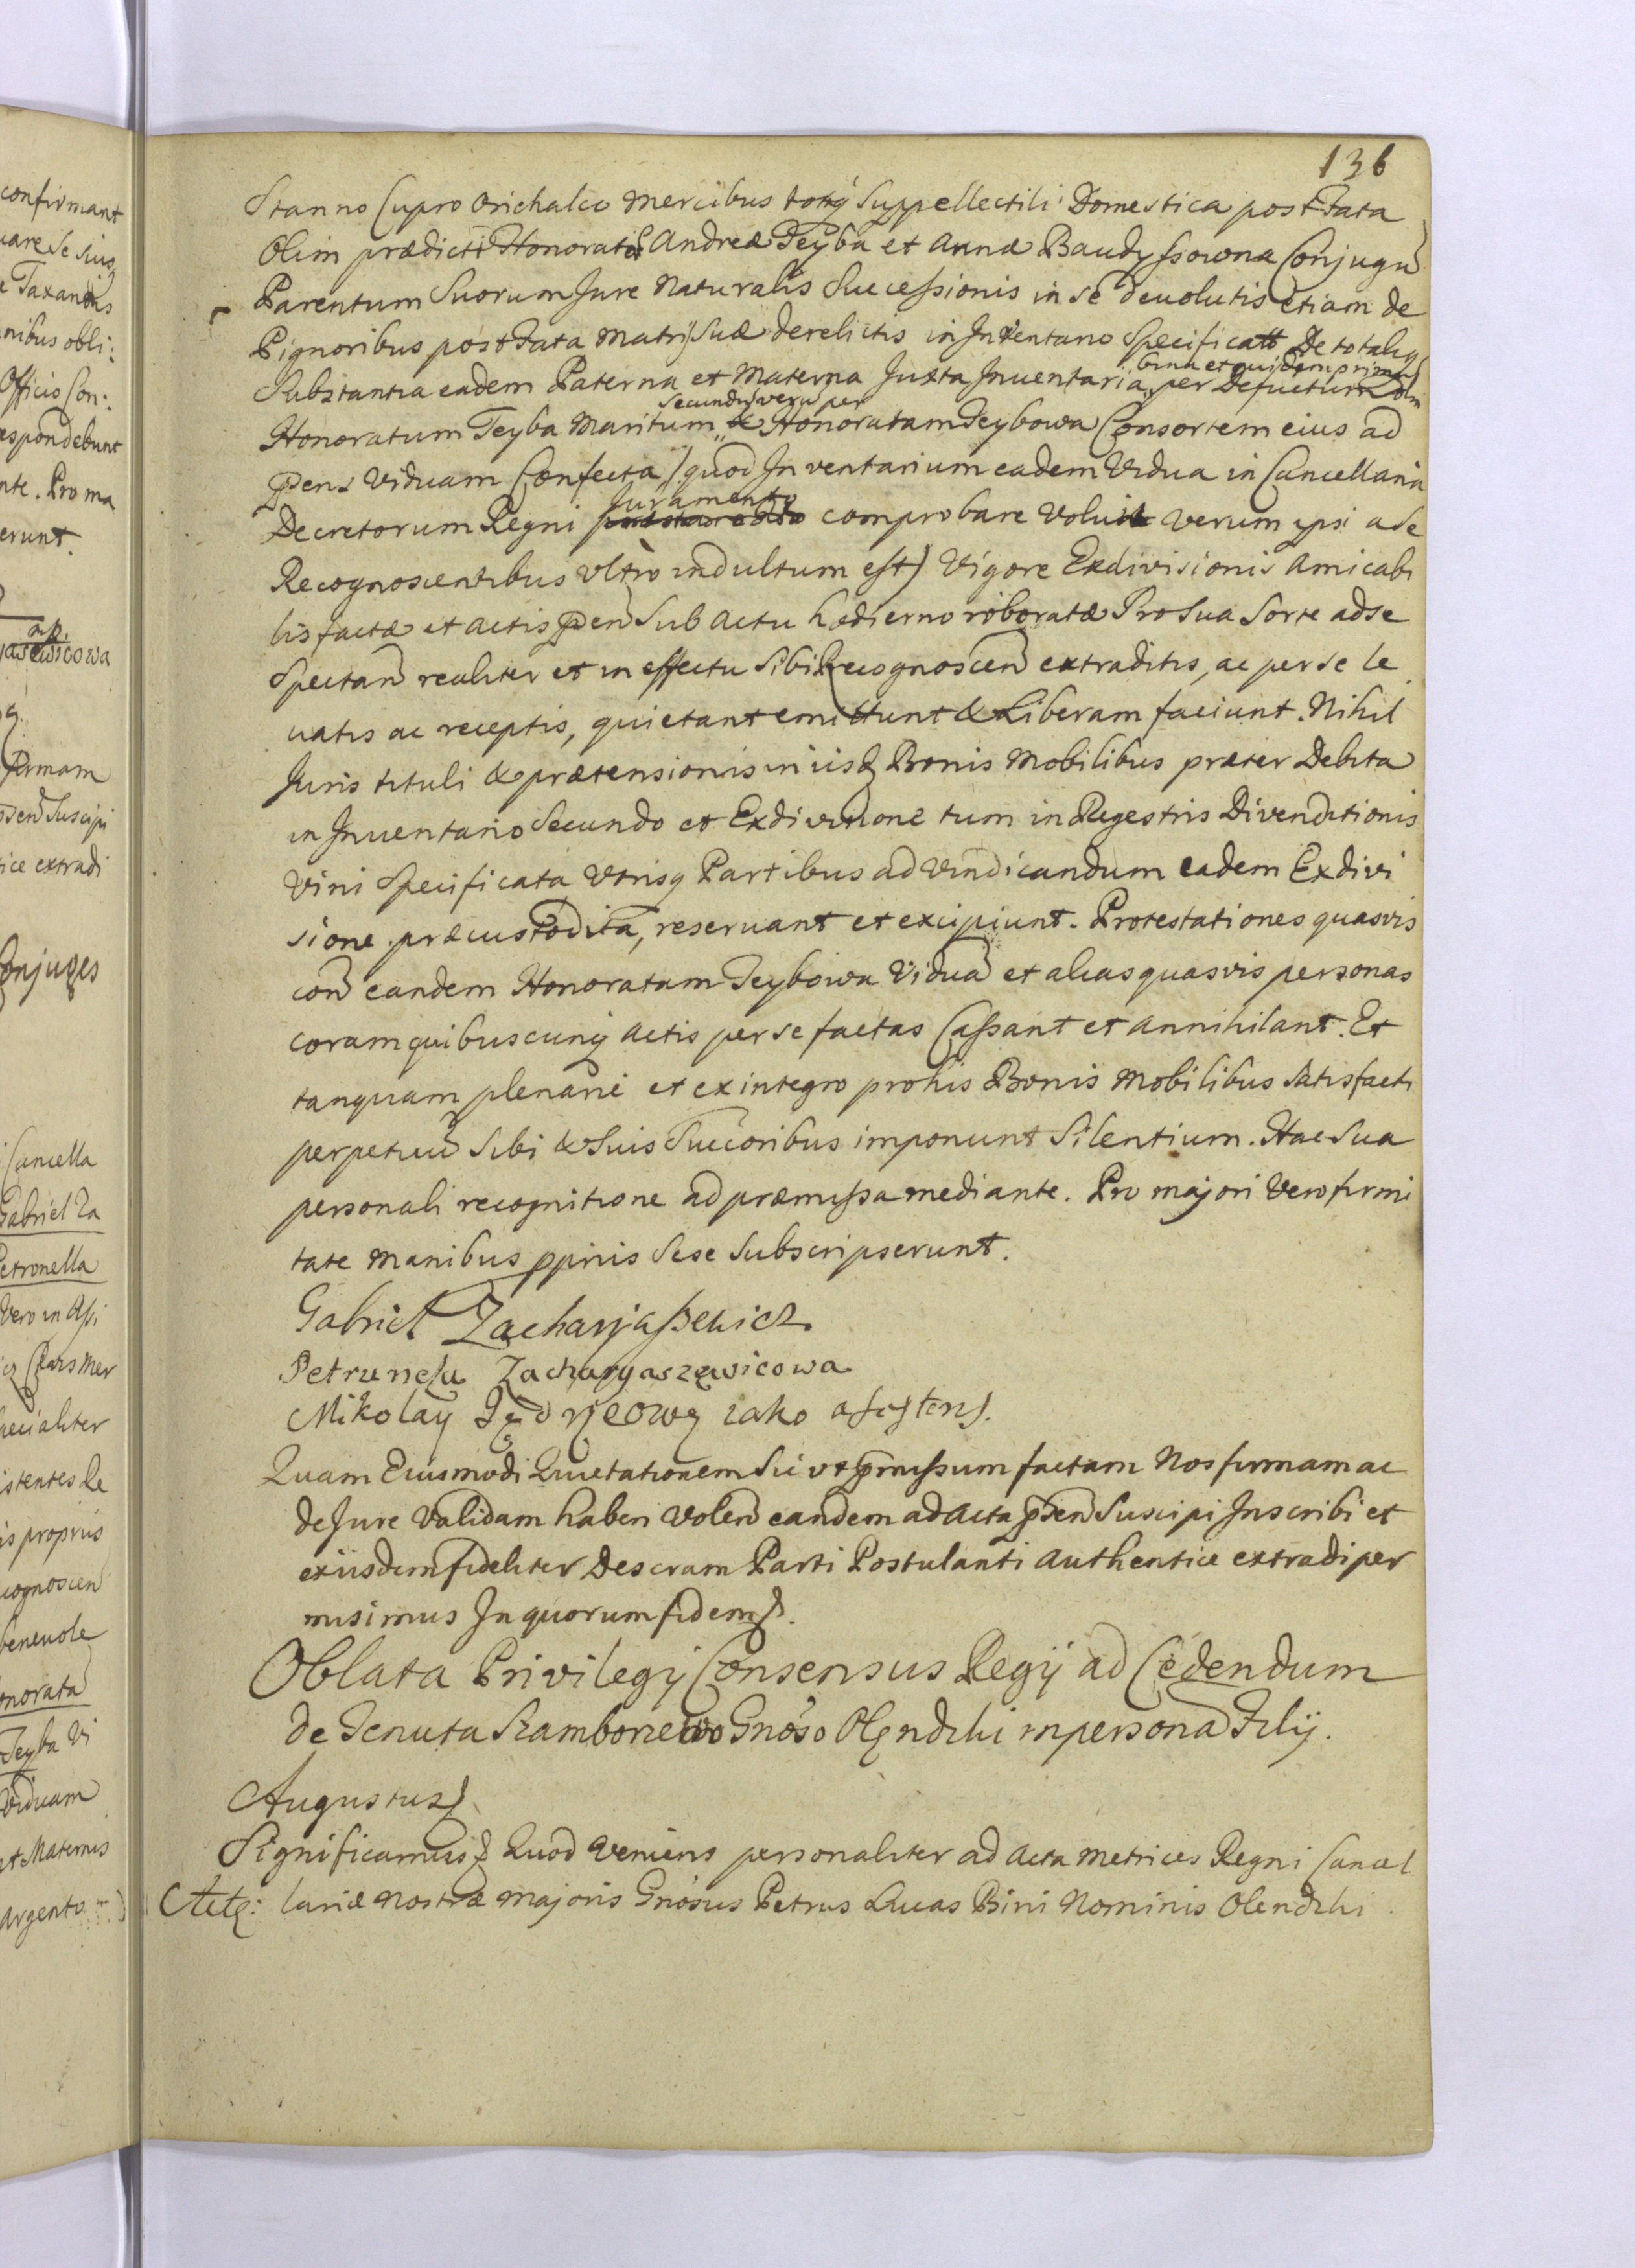 confirmant
uare se siuq
e Taxandis
nibus obli:
Officio Con:
espondebunt
nte. Pro ma
erunt.
asewicowa
firmam
Suscipi
ice extradi
Conjuges
Cancella
Gabriel Za
Petronella
Vero in Assi
Mer
peciahter
istentes Re
is proprus
cognoscen
beneuole
onorata
Teyba Vi
Viduam
et Maternis
Argento
136
Stanno Cupro Orichalco Mercibus totaq Suppellectili Domestica post Fata
Olim prædicti Honorati Andreæ Teyba et Annæ Baudyssowna Conjugu
Parentum Suorum Jure Naturalis Successionis in se deuolutis etiam de
Pignoribus post Fata Matris Suæ derelictis in Inventario Specificatt De totaliq
bina et quidem primu
Substantia eadem Paterna et Materna Juxta Inuentaria per Defunctum olm
Secundu veru per
Honoratum Teyba Maritum & Honoratam Teybowa Consortem eius ad
psens Viduam Confecta /: quod Inventarium eadem Vidua in Cancellaria
Juramento
Decretorum Regni comprobare Voluit verum ipsi a se
Recognoscentibus Ultro indultum est) Vigore Exdivisionis Amicabi
lis factæ et Actis psen Sub Actu hodierno roboratæ Pro Sua Sorte ad se
Spectan realiter et in effectu Sibi Recognoscen extraditis, ac per se le
uatis ac receptis, quietant emittunt & Liberam faciunt. Nihil
Juris tituli & prætensionis in iisd Bonis Mobilibus præter Debita
in Inuentario Secundo et Exdivisione tum in Regestris Divenditionis
Vini Specificata Utrisq Partibus ad Vindicandum eadem Exdivi
sione præcustodita, reseruant et excipiunt. Protestationes quasvis
con eandem Honoratam Teybowa Vidua et alias quasvis personas
coram quibuscunq Actis per se factas Cassant et Annihilant. Et
tanquam plenarie et ex integro pro his Bonis Mobilibus Satisfacti
perpetuu Sibi & Suis Succoribus imponunt Silentium. Hac Sua
personali recognitione ad præmissa mediante. Pro majori Vero firmi
tate Manibus ppriis Sese Subscripserunt.
Gabriel Zacharjassewicz
Petrunela Zacharyaszewicowa
Mikolay iako assistens.
Quam Eiusmodi Quietationem Sic ut pmissum factam Nos firmam ac
de Jure Validam haberi Volen eandem ad Acta psen Suscipi Inscribi et
ex iisdem fideliter Descram Parti Postulanti Authentice extradi per
misimus In quorum fidem
Oblata Privilegij Consensus Regij ad Cedendum
de Tenuta Szamborzewo Gnoso Olendzki in persona Filij.
Augustus
Significamus Quod Veniens personaliter ad Acta Metrices Regni Cancel
lariæ Nostræ Majoris Gnosus Petrus Lucas Bini Nominis Olendzki